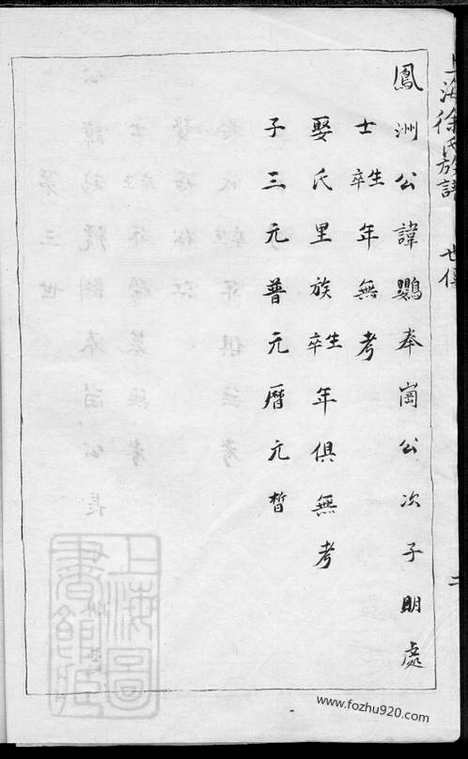 上海徐氏族譜 世傳 二
鳳洲公諱鸚奉崗公次子明處
士生卒年無考
娶氏里族生卒年俱無考
子三元普元曆元晳
上海圖書館藏
www.fozhu920.com